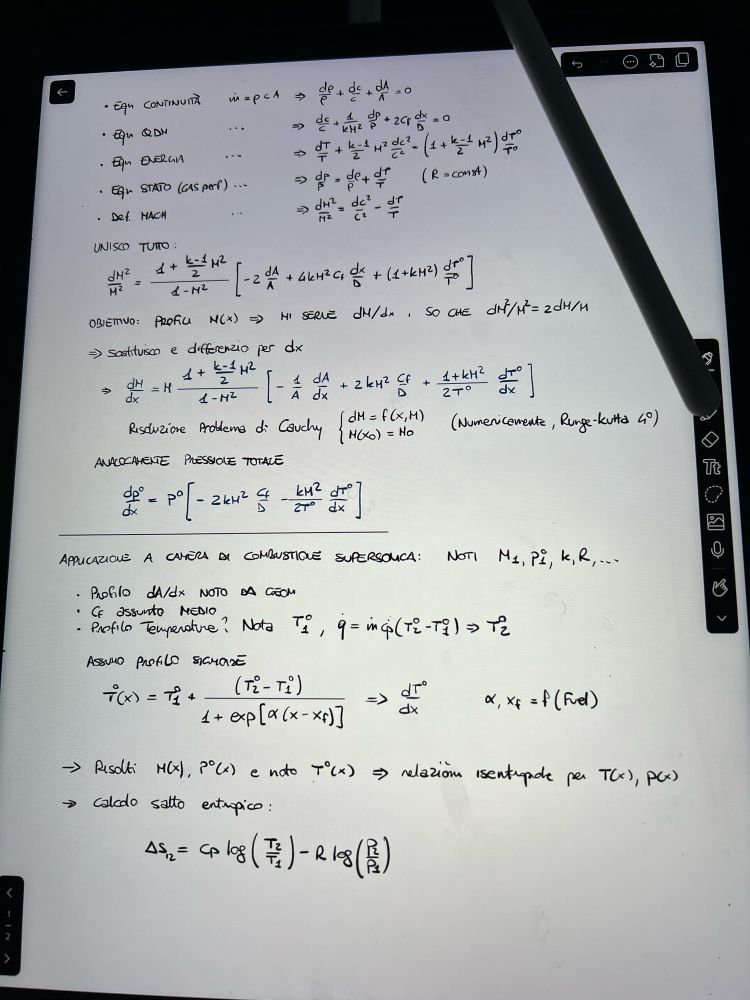 • Eqn CONTINUITÀ ṁ = ρcA ⇒ dρ/ρ + dc/c + dA/A = 0
• Eqn QDM ... ⇒ dc/c + 1/kM² dp/p + 2Cf dx/D = 0
• Eqn ENERGIA ... ⇒ dT/T + k-1/2 M² dc²/c² = (1 + k-1/2 M²) dT°/T°
• Eqn STATO (GAS perf) ... ⇒ dp/p = dρ/ρ + dT/T (R = const)
• Def. MACH ... ⇒ dM²/M² = dc²/c² - dT/T
UNISCO TUTTO:
dM²/M² = 1 + k-1/2 M² / 1-M² [-2 dA/A + 4kM² Cf dx/D + (1+kM²) dT°/T°]
OBIETTIVO: PROFILI M(x) ⇒ MI SERVE dM/dx, SO CHE dM²/M² = 2dM/M
⇒ Sostituisco e differenzio per dx
⇒ dM/dx = M 1 + k-1/2 M² / 1-M² [- 1/A dA/dx + 2kM² Cf/D + 1+kM²/2T° dT°/dx]
Risoluzione Problema di Cauchy { dM = f(x,M) M(x0) = M0 (Numericamente, Runge-kutta 4°)
ANALOGAMENTE PRESSIONE TOTALE
dp°/dx = p° [- 2kM² Cf/D - kM²/2T° dT°/dx]
APPLICAZIONE A CAMERA DI COMBUSTIONE SUPERSONICA: NOTI M1, p°1, k, R, ...
• Profilo dA/dx NOTO DA GEOM
• Cf assunto MEDIO
• Profilo Temperature? Nota T°1, q̇ = ṁ cp(T°2 - T°1) ⇒ T°2
ASSUMO PROFILO SIGMOIDE
T°(x) = T°1 + (T°2 - T°1) / 1 + exp[α(x - xf)] ⇒ dT°/dx α, xf = f(Fuel)
→ Risolti M(x), P°(x) e noto T°(x) ⇒ relazioni isentropiche per T(x), p(x)
→ Calcolo salto entropico:
ΔS12 = cp log(T2/T1) - R log(P2/P1)
Tt
1
2